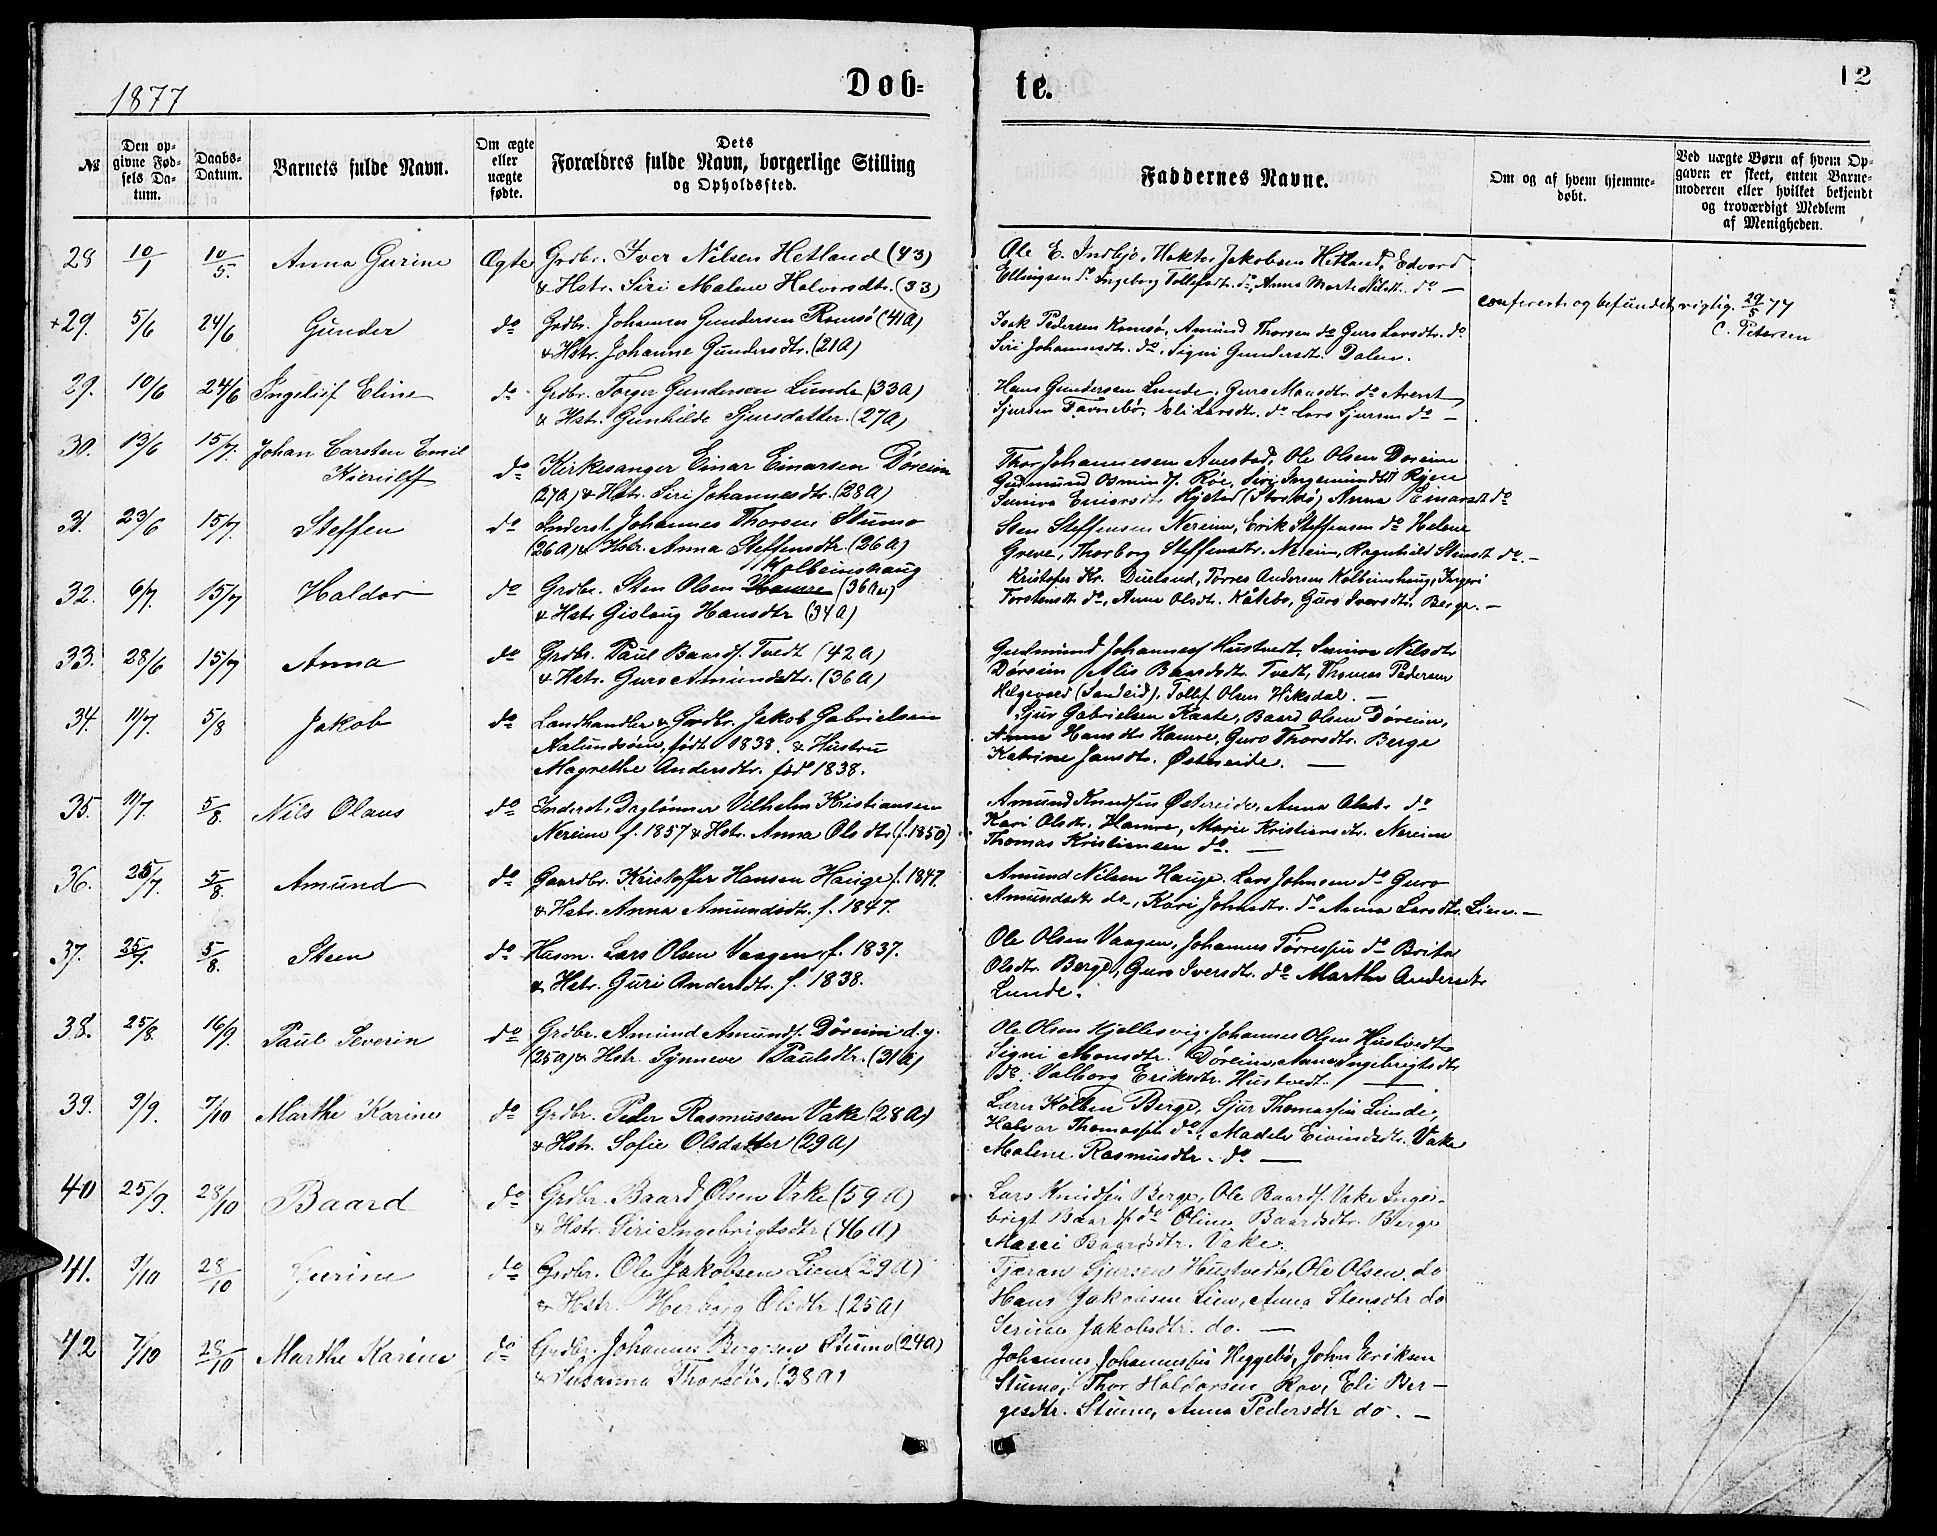 1877
Døb-
te.
12
№
Den op-
givne Fød-
sels Da-
tum.
Daabs-
Datum.
Barnets fulde Navn.
Om ægte
eller
uægte
fødte.
Dets
Forældres fulde Navn, borgerlige Stilling
og Opholdssted.
Faddernes Navne.
Om og af hvem hjemme-
døbt.
Ved uægte Børn af hvem Op-
gaven er skeet, enten Barne-
moderen eller hvilket bekjendt
og troværdigt Medlem
af Menigheden.
28 10/1 10/5 Anna Gurine Ægte Grdbr. Iver Nilsen Hetland (43)
& Hstr. Siri Malene Halvorsdtr. (33)
Ole E. Indbjo, Jakobsen Hetland, Edvard
Ellingsen do Ingeborg Tollefsdtr. do, Anna Marte Nilsdt. do —
conferert og befundet rigtig 29/5 77
C. Petersen
+29. 5/6 24/6 Gunder do Grdbr. Johannes Gundersen Ramsø (41A)
& Hstr. Johanne Gundersdtr. (21A)
Isak Pedersen Ramsø, Amund Thorsen do Guro Larsdtr. do
Siri Johannesdtr. do, Signi Gundersdt. Dalen.
29. 10/6 24/6 Ingelif Eline do Grdbr. Torger Gundersen Lunde (33A)
& Hstr. Gunhilde Sjursdatter (27A)
Hans Gundersen Lunde, Guro Monsdtr. do Arent
Sjursen Favnebø, Eli Larsdtr. do Lars Sjursen do —
30. 13/6 15/7 Johan Carsten Emil
Kierulff do Kirkesanger Einar Einarsen Døreim
(27A) & Hstr. Siri Johannesdtr. (28A)
Thor Johannesen Aurstad, Ole Olsen Doreim
Gudmund Osmunds. Röe, Siri Ingemundsdt
Suniva Einarsdt. Anna Einarsdt do
31. 23/6 15/7 Steffen do Inderst Johannes Thorsen Stumo
(26A) & Hstr. Anna Steffensdtr. (26A)
Sten Steffensen Nereim, Erik Steffensen do Helene
Greve, Thorborg Steffensdtr. Nereim, Ragnhild Stensdt. do. —
32. 6/7 15/7 Haldor do Grdbr. Sten Olsen Hamre Kolbeinshaug (36 Aar)
& Hstr Gislaug Hansdtr (34A)
Kristofer Kr. Duelund, Törres Andersen Kolbeinshaug, Ingeri
Torstensdt. do, Anna Olsdtr. Kåtebo, Guro Iversdtr. Berge. —
33. 28/6 15/7 Anna do Grdbr. Paul Baards. Tvedt (42A)
& Hstr. Guro Amundsdtr. (36A)
Gudmund Johannes. Hustvedt, Sunniva Nilsdtr
Døreim Alis Baardsdtr. Tvedt, Thomas Pedersen
Helgevold (Sandeid), Tollef Olsen Viksdal. —
34. 11/7 5/8 Jakob do Landhandler & Grdbr. Jakob Gabrielsen
Aalundsøen, født 1838. & Hustru
Magrethe Andersdtr. fød 1838.
Sjur Gabrielsen Kaate, Baard Olsen Døreim,
Anna Hansdtr Hamre, Guro Thorsdtr. Berge
Katrine Jansdtr. Østreide. —
35. 11/7 5/8. Nils Olaus do Inderst, Daglønner Vilhelm Kristiansen
Nereim f. 1857 & Hstr. Anna Olsdtr. (f. 1850)
Amund Knudsen Østereide, Anna Olsdtr. do
Kari Olsdtr. Hamre, Marie Kristiansdtr. Nereim
Thomas Kristiansen do. —
36. 25/7. 5/8. Amund do Gaardbr. Kristoffer Hansen Hauge f. 1847.
& Hstr. Anna Amundsdtr. f. 1847.
Amund Nilsen Hauge. Lars Johnsen do Guro
Amundsdtr do, Kari Johnsdtr. do Anna Larsdtr. Lien. —
37. 25/7. 5/8. Steen do Husm. Lars Olsen Vaagen f. 1837.
& Hstr. Guri Andersdtr. f. 1838.
Ole Olsen Vaagen, Johannes Tørressen do Brita
Olsdtr. Berge, Guro Iversdtr. do Martha Andersdtr
Lunde.
38. 25/8. 16/9. Paul Severin do Grdbr. Amund Amunds. Døreim d.y.
(25A) & Hstr. Synneve Paulsdtr. (31A)
Ole Olsen Kjellesvig, Johannes Olsen Hustvedt
Signi Monsdtr. Døreim, Anna Ingebrigtsdtr
do. Valborg Eriksdtr. Hustvedt. —
39. 9/9. 7/10 Marthe Karine do Grdbr. Peder Rasmussen Vake (28A)
& Hstr. Sofie Olsdatter (29A)
Lærer Kolben Berge, Sjur Thomassen Lunde,
Halvor Thomassen do, Madele Eivindsdtr. Vake
Malene Rasmusdtr. do —
40 25/9. 28/10 Baard do Grdbr. Baard Olsen Vake (59A)
& Hstr. Siri Ingebrigtsdtr (46A)
Lars Knudsen Berge, Ole Baards. Vake Inge-
brigt Baards. do Oline Baardsdtr. Berge
Marri Baardsdtr. Vake.
41. 9/10 28/10 Gurine do Grdbr. Ole Jakobsen Lien (29A)
& Hstr. Herborg Olsdtr. (25A)
Tjæran Sjursen Hustvedt, Ole Olsen do
Hans Jakobsen Lien, Anna Stensdtr do
Serine Jakobsdtr. do. —
42 7/10 28/10 Marthe Karine do Grdbr. Johannes Bergesen Stumo (24A)
& Susanna Thorsdtr. (38A)
Johannes Johannessen Heggebø, John Eriksen
Stumo, Thor Haldorsen Røv, Eli Ber-
gesdtr. Stumo, Anna Pedersdtr do. —